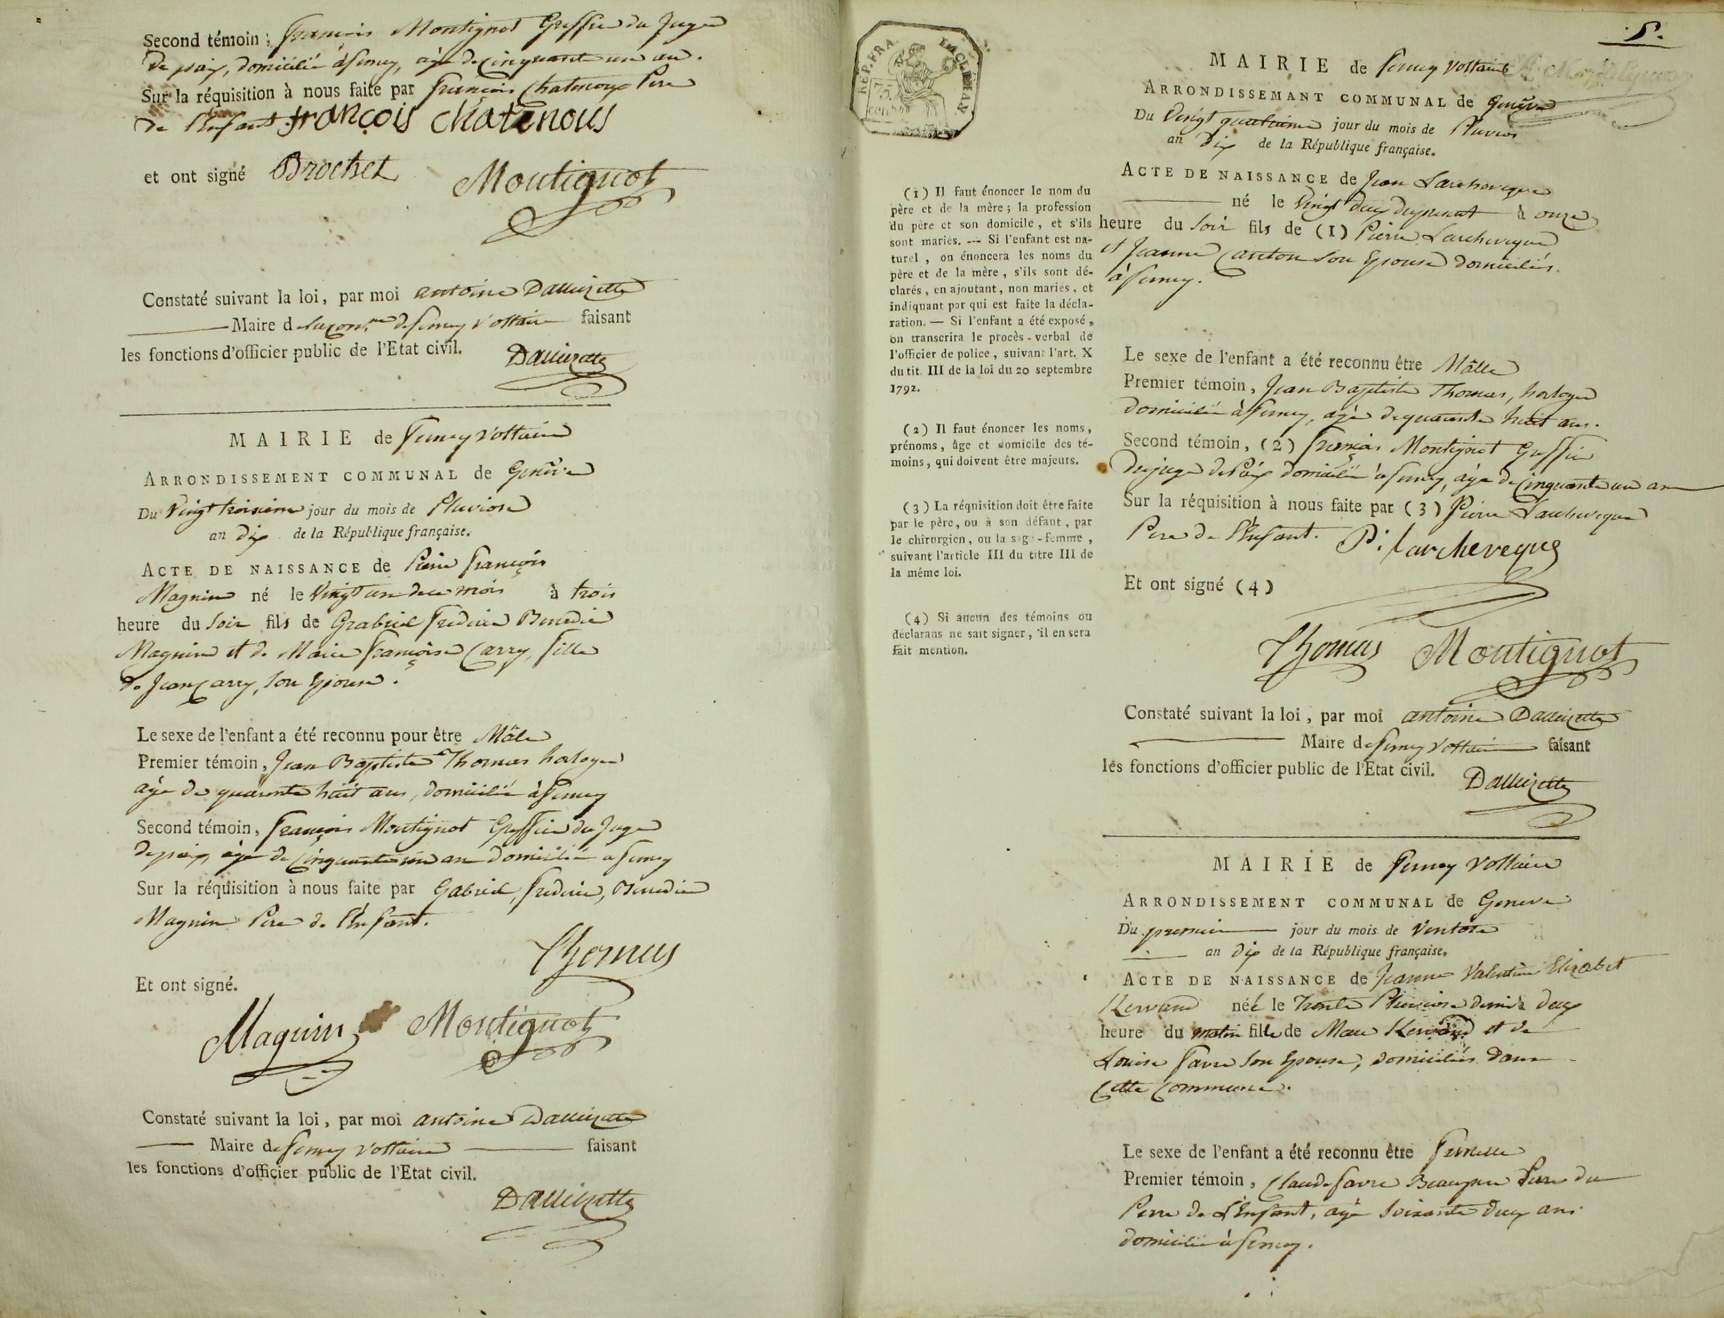 Second témoin; françois Montignot Greffier du Juge
de paix, domicilié à ferney, âgé de cinquante un an.
Sur la réquisition à nous faite par françois Chatenoux Pere
de l'Enfant. françois chatenous
et ont signé Brochet Montignot
Constaté suivant la loi, par moi antoine Dallizette
Maire de la com.ne de ferney Voltaire faisant
les fonctions d'officier public de l'Etat civil. Dallizette
MAIRIE de ferney Voltaire
ARRONDISSEMENT COMMUNAL de Genève
Du Vingt troisieme jour du mois de Pluviose
an dix de la République française.
ACTE DE NAISSANCE de Pierre françois
Magnin né le Vingt un de ce mois à trois
heure du Soir fils de Grabriel frederic Benedic
Magnin et de Marie françoise Carry, fille
de Jean Carry, son Epouse.
Le sexe de l'enfant a été reconnu pour être Mâle
Premier témoin, Jean Baptiste Thomas horloger
âgé de quarante huit ans, domicilié à ferney
Second témoin, françois Montignot Greffier du Juge
de paix, âgé de Cinquante un an domicilié a ferney
Sur la réquisition à nous faite par Gabriel, frederic, Benedic
Magnin Pere de l'Enfant.
Thomas
Et ont signé.
Magnin Montignot
Constaté suivant la loi, par moi antoine Dallizette
Maire de ferney Voltaire faisant
les fonctions d'officier public de l'Etat civil.
Dallizette
5.
REP. FRA.
75
CEN
MAIRIE de ferney Voltaire
ARRONDISSEMANT COMMUNAL de Genève
Du Vingt quatrieme jour du mois de Pluviose
an dix de la République française.
ACTE DE NAISSANCE de Jean Larcheveque
né le Vingt deux du present à onze
heure du Soir fils de (1) Pierre Larcheveque
et Jeanne Canton son Epouse domiciliés
à ferney.
(1) Il faut énoncer le nom du
père et de la mère; la profession
du père et son domicile, et s'ils
sont mariés. — Si l'enfant est na-
turel, on énoncera les noms du
père et de la mère, s'ils sont dé-
clarés, en ajoutant, non mariés, et
indiquant par qui est faite la décla-
ration. — Si l'enfant a été exposé,
on transcrira le procès-verbal de
l'officier de police, suivant l'art. X
du tit. III de la loi du 20 septembre
1792.
(2) Il faut énoncer les noms,
prénoms, âge et domicile des té-
moins, qui doivent être majeurs.
(3) La réquisition doit être faite
par le père, ou à son défaut, par
le chirurgien, ou la sage-femme,
suivant l'article III du titre III de
la même loi.
(4) Si aucun des témoins ou
déclarans ne sait signer, il en sera
fait mention.
Le sexe de l'enfant a été reconnu être Mâlle
Premier témoin, Jean Baptiste Thomas, horloger
domicilié à ferney, agé de quarante huit ans.
Second témoin, (2) françois Montignot Greffier
du juge de Paix domicilié à ferney, âgé de Cinquante un an
Sur la réquisition à nous faite par (3) Pierre Larcheveque
Pere de l'Enfant. P: larcheveque
Et ont signé (4)
Thomas Montignot
Constaté suivant la loi, par moi antoine Dallizette
Maire de ferney Voltaire faisant
lés fonctions d'officier public de l'Etat civil.
Dallizette
MAIRIE de ferney Voltaire
ARRONDISSEMENT COMMUNAL de Geneve
Du premier jour du mois de Ventose
an dix de la République française.
ACTE DE NAISSANCE de Jeanne Valentine Elizabet
Kervand née le trente Pluviose dernier à deux
heure du matin fille de Marc Kervand et de
Louise favre son Epouse, domiciliés dans
Cette Commune.
Le sexe de l'enfant a été reconnu être femelle
Premier témoin, Claude favre Beaupere du
Pere de L'Enfant, agé Soixante deux ans
domicilié à ferney.